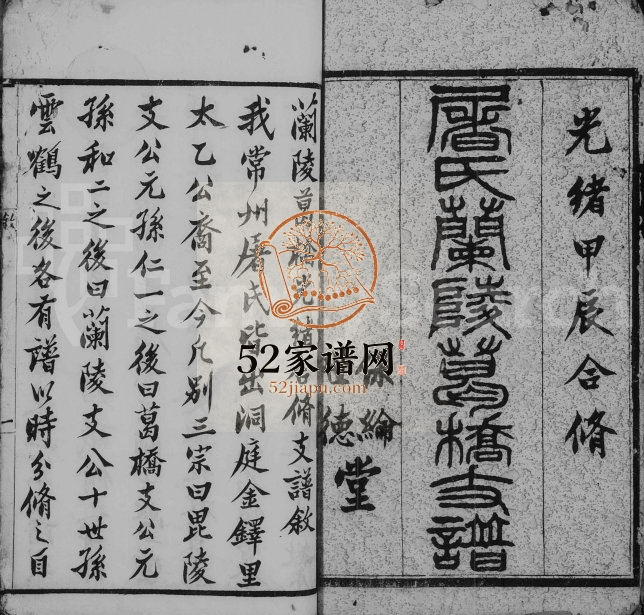 光緒甲辰合脩
屠氏蘭陵葛橋支譜
綸
德堂
蘭陵葛橋光緒脩支譜敘
我常州屠氏皆出洞庭金鐸里
太乙公裔至今凡別三宗曰毘陵
支公元孫仁一之後曰葛橋支公元
孫和二之後曰蘭陵支公十世孫
雲鶴之後各有譜以時分脩之自
52家谱网
52jiapu.com